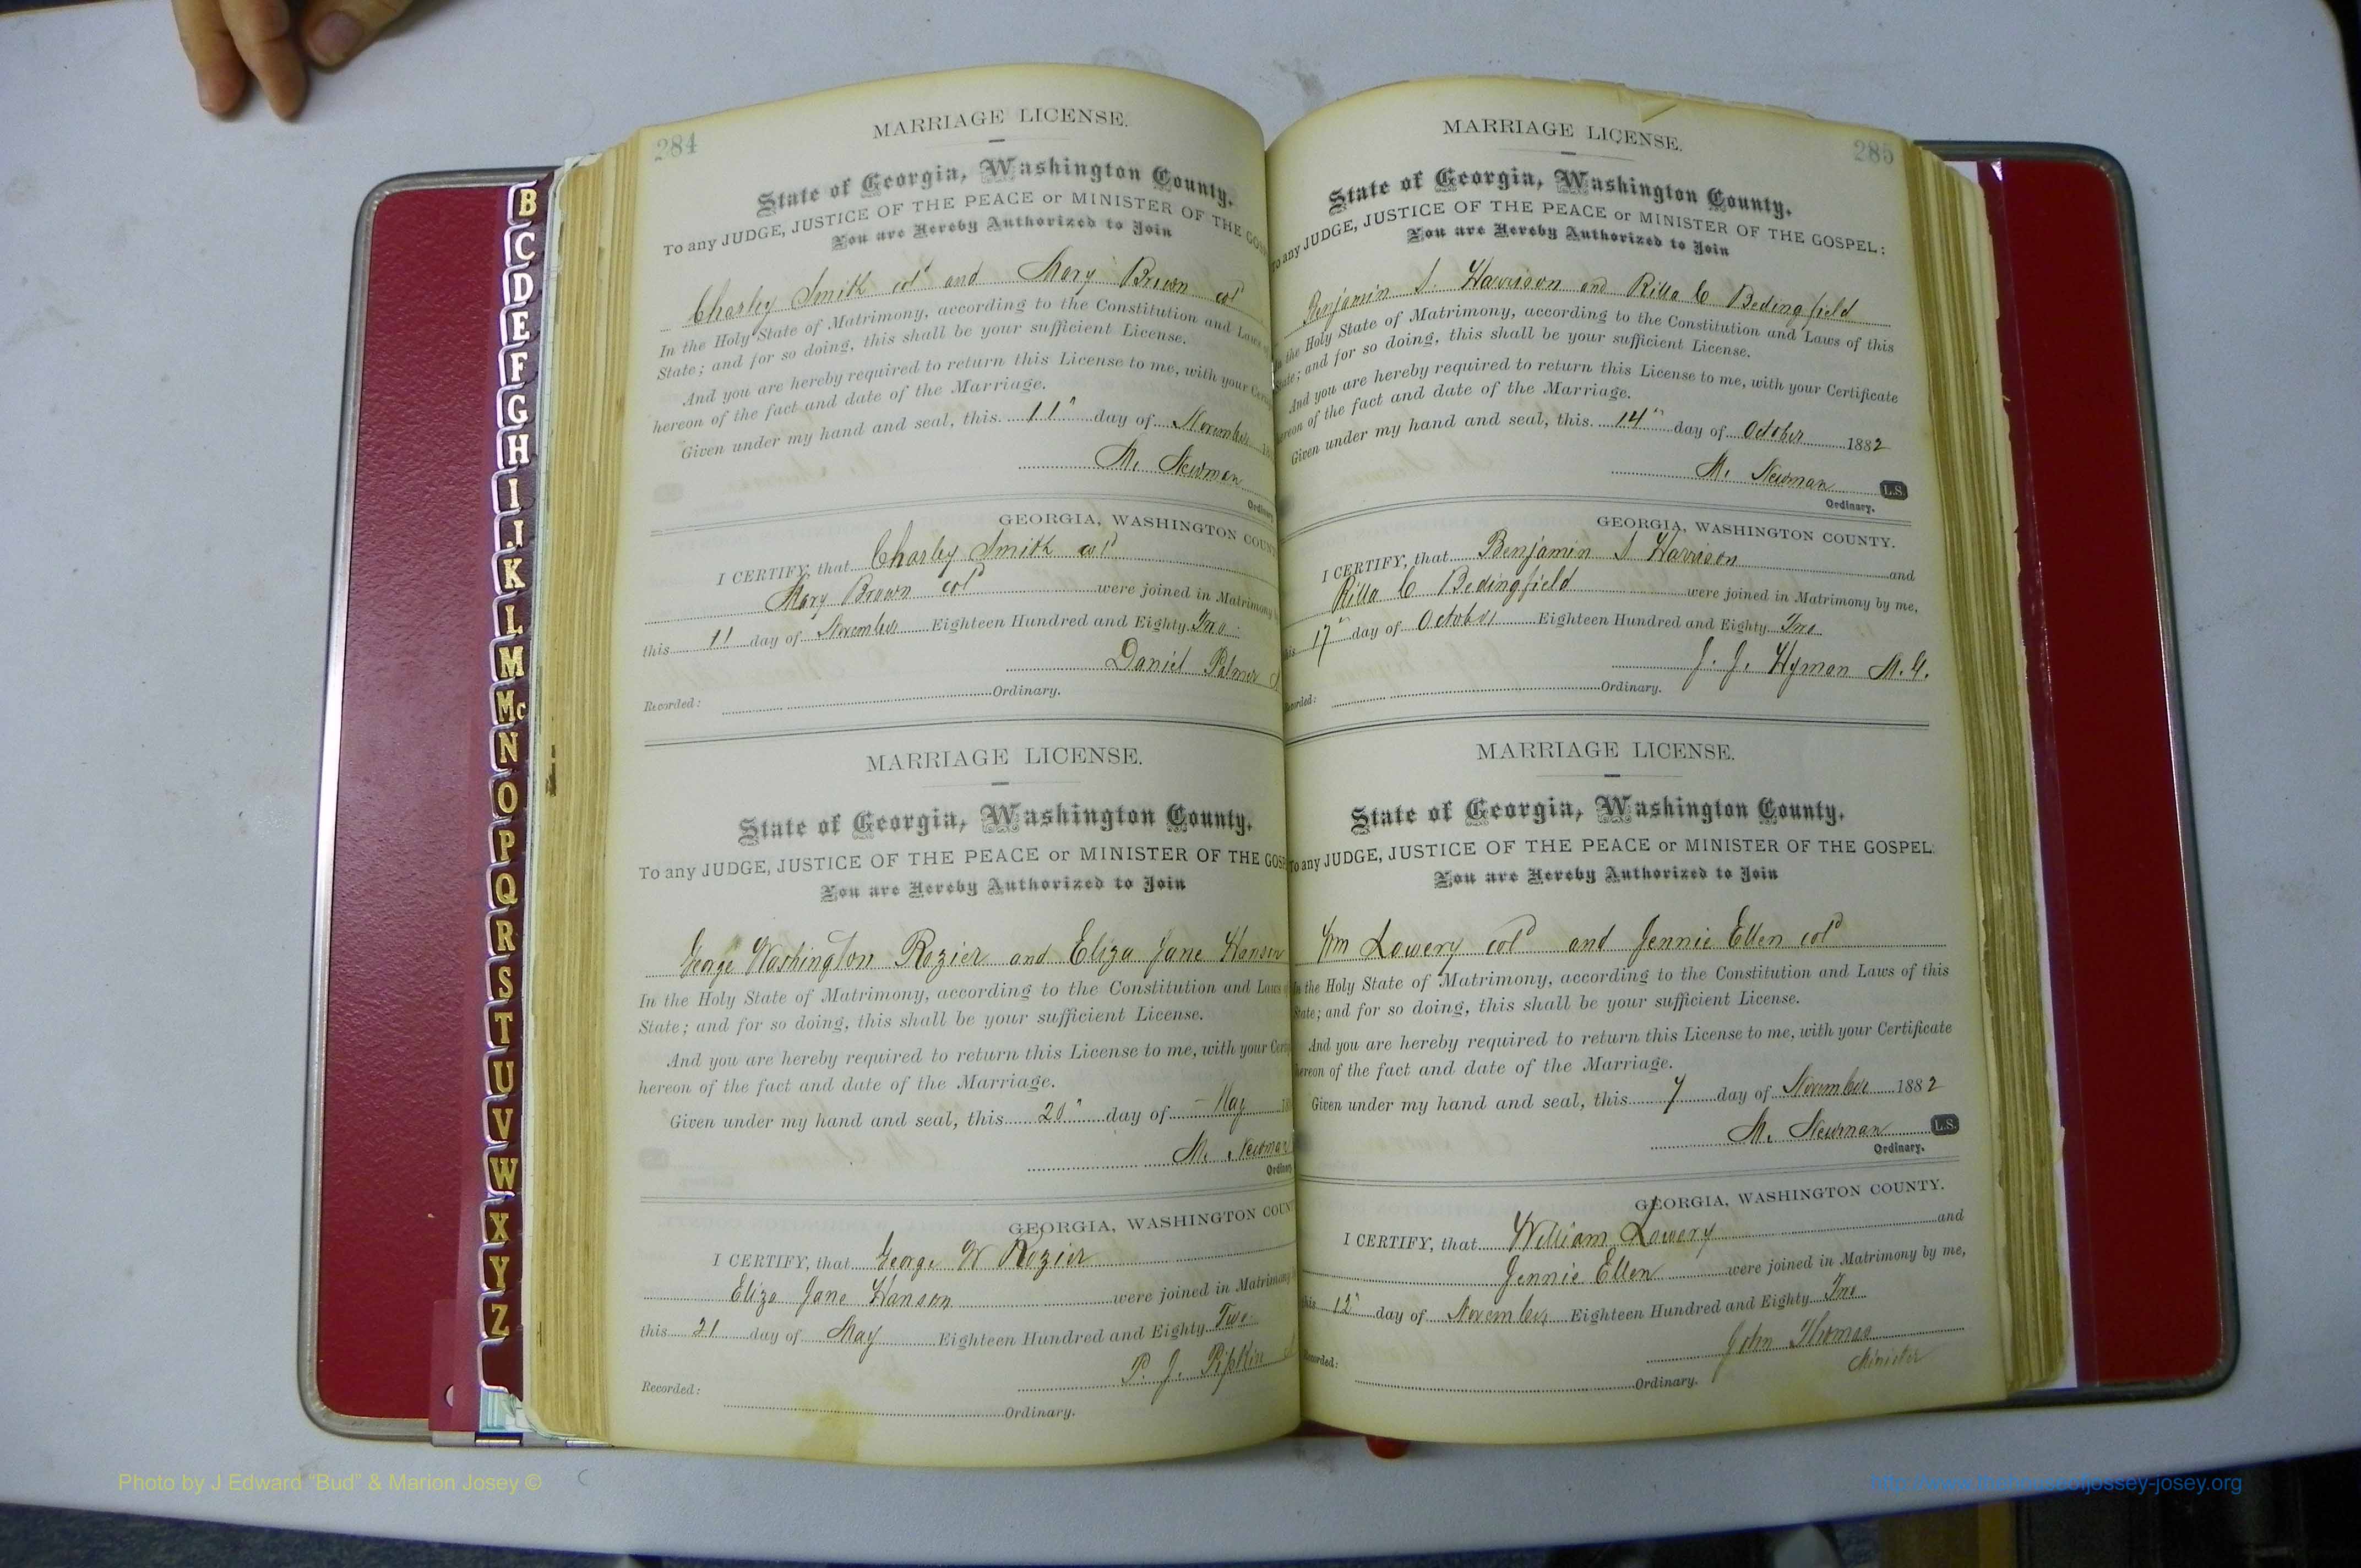 B
C
D
E
F
G
H
I
J
K
L
M
Mc
N
O
P
Q
R
S
T
U
V
W
X
Y
Z
284
MARRIAGE LICENSE.
State of Georgia, Washington County.
To any JUDGE, JUSTICE OF THE PEACE or MINISTER OF THE GOS
You are Hereby Authorized to Join
Charley Smith col'd and Mary Brown col'd
In the Holy State of Matrimony, according to the Constitution and Laws
State; and for so doing, this shall be your sufficient License.
And you are hereby required to return this License to me, with your Certi
hereon of the fact and date of the Marriage.
Given under my hand and seal, this 11" day of November 18
M. Newman
Ordinary
GEORGIA, WASHINGTON COUN
I CERTIFY, that Charley Smith col'd
Mary Brown col'd were joined in Matrimony
this 11 day of November Eighteen Hundred and Eighty Two
Daniel Palmer
Recorded: Ordinary.
MARRIAGE LICENSE.
State of Georgia, Washington County.
To any JUDGE, JUSTICE OF THE PEACE or MINISTER OF THE GOSP
You are Hereby Authorized to Join
George Washington Rozier and Eliza Jane Hanson
In the Holy State of Matrimony, according to the Constitution and Laws
State; and for so doing, this shall be your sufficient License.
And you are hereby required to return this License to me, with your Certi
hereon of the fact and date of the Marriage.
Given under my hand and seal, this 20" day of May 18
M. Newman
Ordinary
GEORGIA, WASHINGTON COUN
I CERTIFY, that George W Rozier
Eliza Jane Hanson were joined in Matrimony
this 21 day of May Eighteen Hundred and Eighty Two
P. J. Pipkin
Recorded: Ordinary.
285
MARRIAGE LICENSE.
State of Georgia, Washington County.
To any JUDGE, JUSTICE OF THE PEACE or MINISTER OF THE GOSPEL:
You are Hereby Authorized to Join
Benjamin S. Harrison and Rilla C Bedingfield
In the Holy State of Matrimony, according to the Constitution and Laws of this
State; and for so doing, this shall be your sufficient License.
And you are hereby required to return this License to me, with your Certificate
hereon of the fact and date of the Marriage.
Given under my hand and seal, this 14" day of October 1882
M. Newman L.S.
Ordinary.
GEORGIA, WASHINGTON COUNTY.
I CERTIFY, that Benjamin S Harrison and
Rilla C Bedingfield were joined in Matrimony by me,
this 17" day of October Eighteen Hundred and Eighty Two
J. J. Hyman M.G.
Recorded: Ordinary.
MARRIAGE LICENSE.
State of Georgia, Washington County.
To any JUDGE, JUSTICE OF THE PEACE or MINISTER OF THE GOSPEL:
You are Hereby Authorized to Join
Wm Lowery col'd and Jennie Ellen col'd
In the Holy State of Matrimony, according to the Constitution and Laws of this
State; and for so doing, this shall be your sufficient License.
And you are hereby required to return this License to me, with your Certificate
hereon of the fact and date of the Marriage.
Given under my hand and seal, this 7 day of November 1882
M. Newman L.S.
Ordinary.
GEORGIA, WASHINGTON COUNTY.
I CERTIFY, that William Lowery and
Jennie Ellen were joined in Matrimony by me,
this 12" day of November Eighteen Hundred and Eighty Two
John Thomas
Minister
Recorded: Ordinary.
Photo by J Edward "Bud" & Marion Josey ©
http://www.thehouseofjossey-josey.org